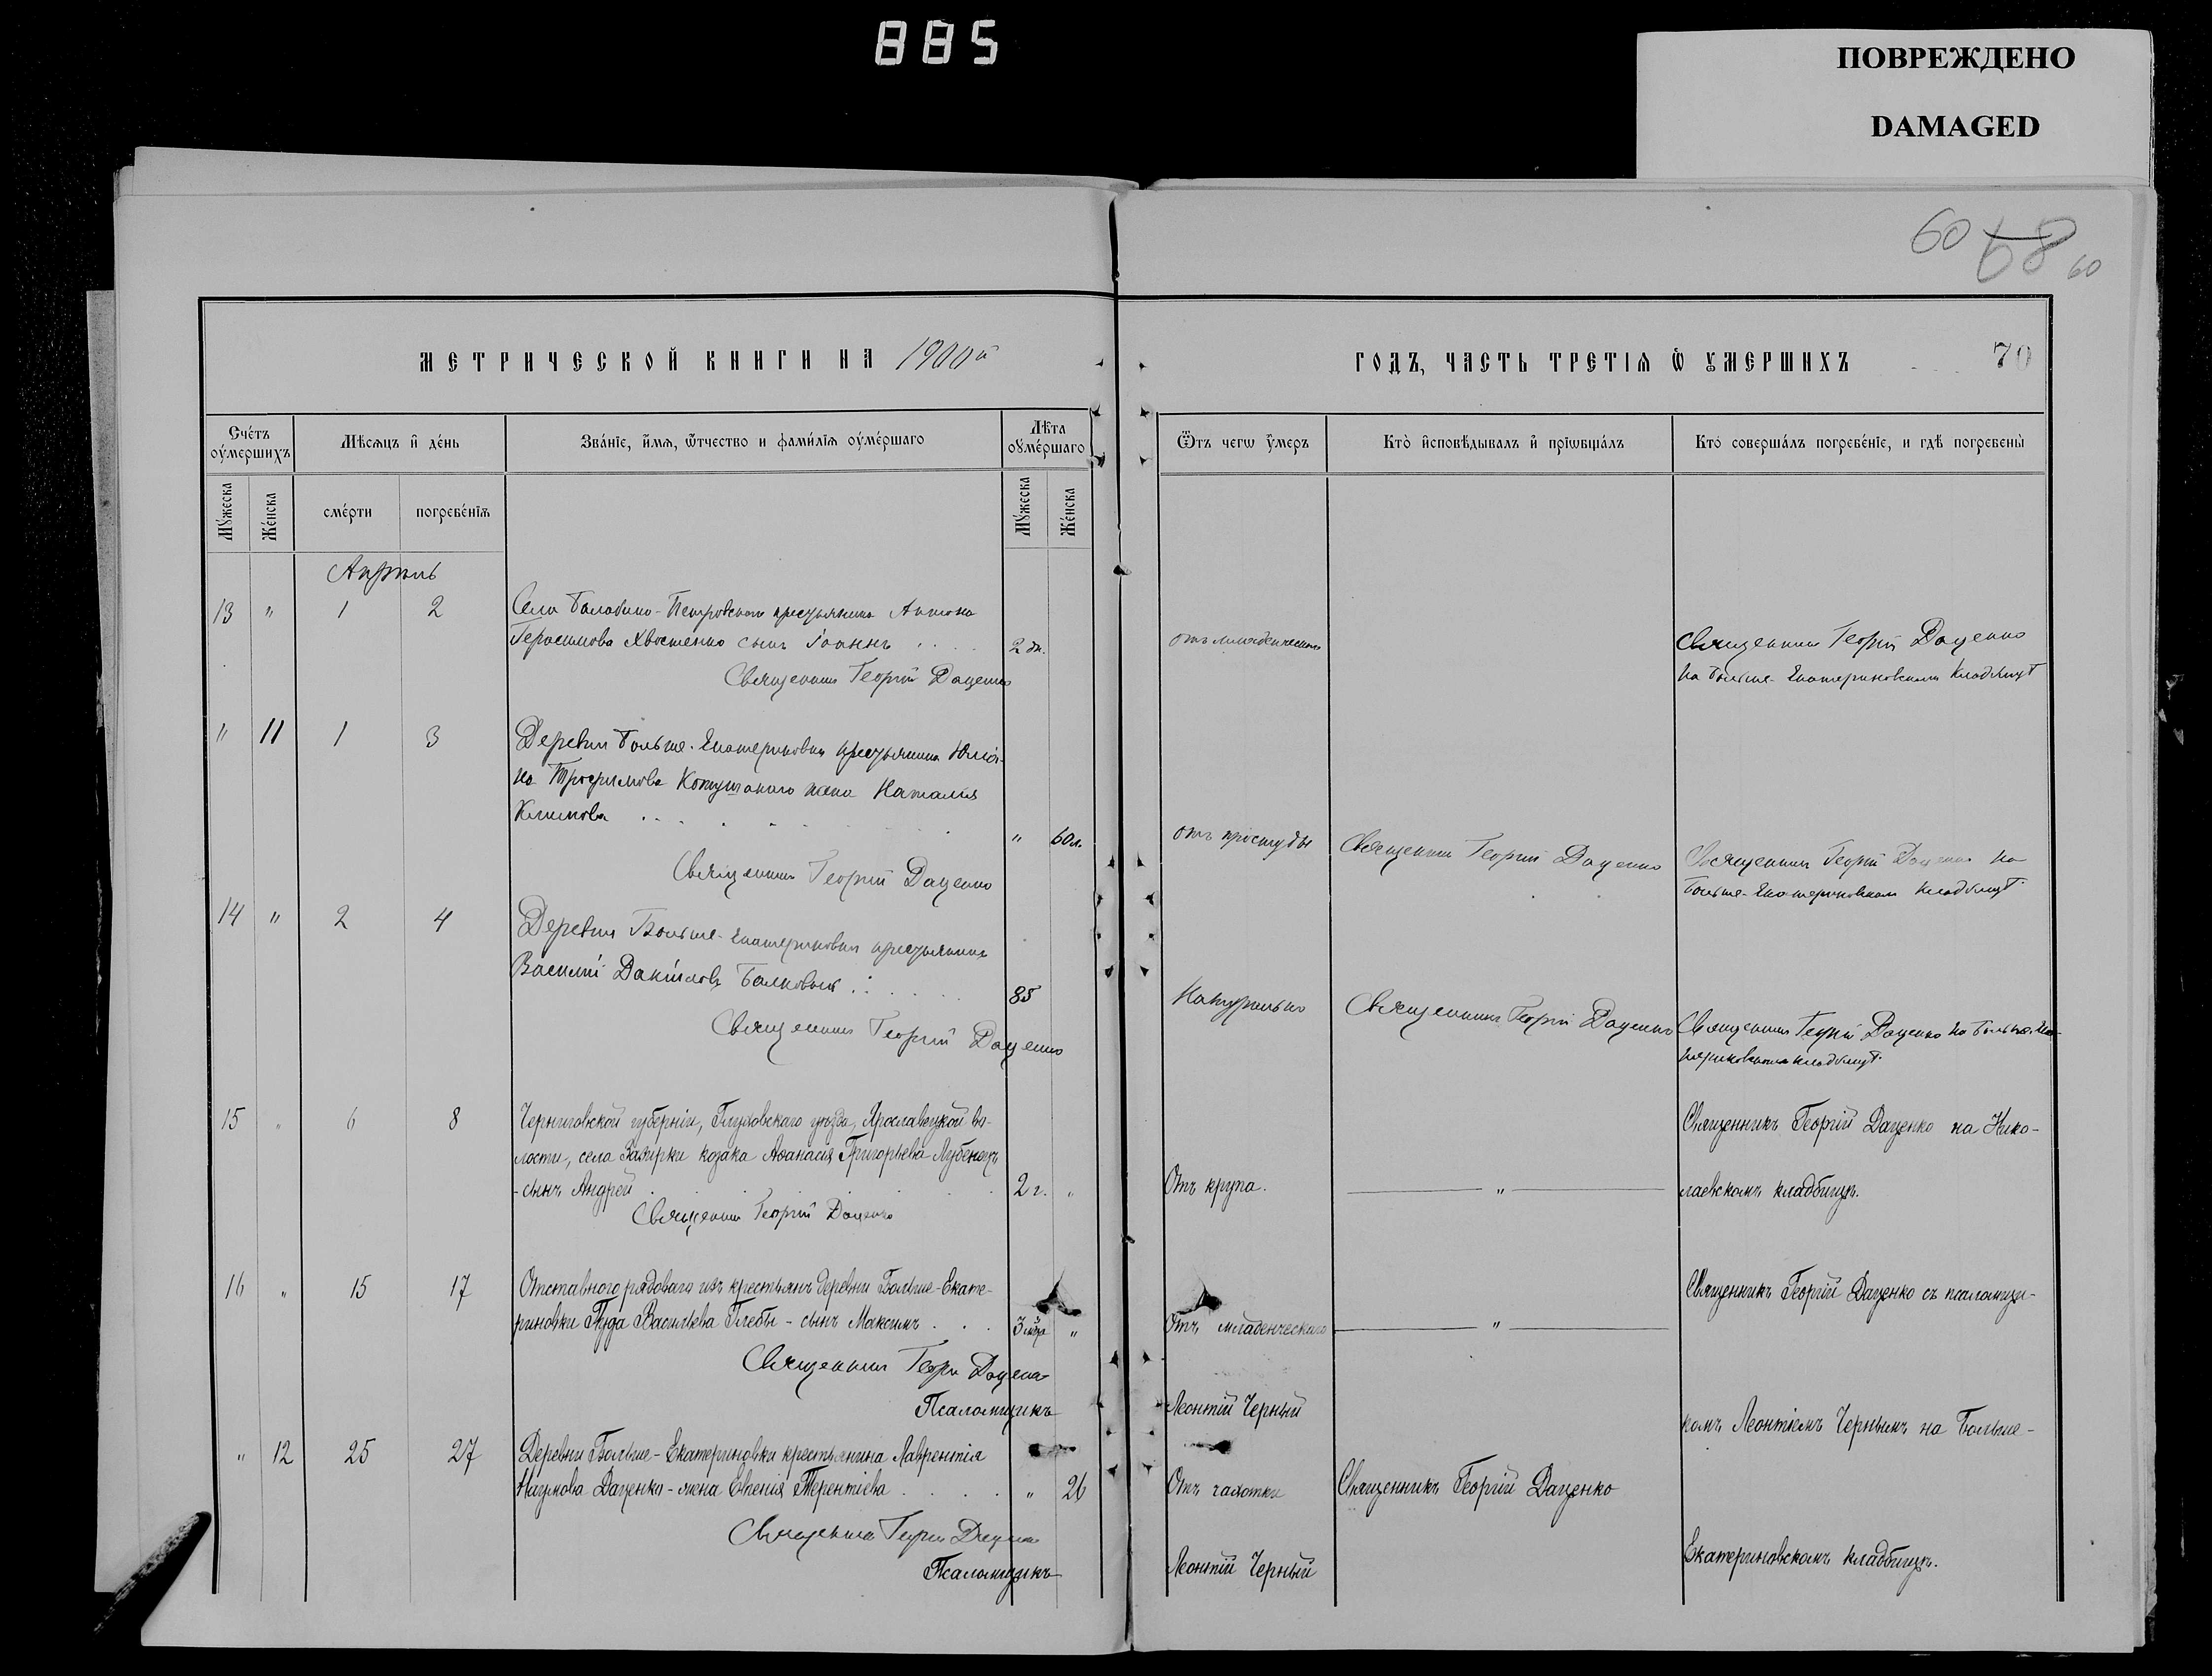 885
ПОВРЕЖДЕНО
DAMAGED
60 68 60
МЕТРИЧЕСКОЙ КНИГИ НА 1900й
ГОДЪ, ЧАСТЬ ТРЕТІѦ Ѡ ОУМЕРШИХЪ 70
Счетъ оумершихъ
Мѣсяцъ и день
Званіе, имя, отчество и фамилія оумершаго
Лѣта оумершаго
Отъ чего умеръ
Кто исповѣдывалъ и пріобщалъ
Кто совершалъ погребеніе, и гдѣ погребены
Мужеска
Женска
смерти
погребенія
Мужеска
Женска
Апрѣль
13 " 1 2
Села Балабино-Петровскаго крестьянина Антона
Герасимова Хвостенко сынъ Іоаннъ
2 дн.
отъ младенческой
Священникъ Георгій Даценко
на Больше-Екатериновскомъ кладбищѣ
Священникъ Георгій Даценко
" 11 1 3
Деревни Больше-Екатериновки крестьянина Юліа-
на Трофимова жена Наталія
Климова
" 60 л.
отъ простуды
Священникъ Георгій Даценко
Священникъ Георгій Даценко на
Больше-Екатериновскомъ кладбищѣ.
Священникъ Георгій Даценко
14 " 2 4
Деревни Больше-Екатериновки крестьянинъ
Василій Даніиловъ
85
Натурально
Священникъ Георгій Даценко
Священникъ Георгій Даценко на Больше-Ека-
териновскомъ кладбищѣ.
Священникъ Георгій Даценко
15 " 6 8
Черниговской губерніи, Глуховскаго уѣзда, Ярославецкой во-
лости, села Зазирки козака Аѳанасія Григорьева Лубенецъ
- сынъ Андрей
2 г. "
Отъ крупа.
"
Священникъ Георгій Даценко на Нико-
лаевскомъ кладбищѣ.
Священникъ Георгій Даценко
16 " 15 17
Отставного рядоваго изъ крестьянъ деревни Больше-Екате-
риновки Іуда Васильева Глебы - сынъ Максимъ
3 мѣр "
Отъ младенческаго
"
Священникъ Георгій Даценко съ псаломщи-
Священникъ Георгій Даценко
Псаломщикъ Леонтій Черный
комъ Леонтіемъ Чернымъ на Больше-
" 12 25 27
Деревни Больше-Екатериновки крестьянина Лаврентія
Наумова Даценко - жена Евгенія Терентіева
" 26
Отъ чахотки
Священникъ Георгій Даценко
Священникъ Георгій Даценко
Псаломщикъ Леонтій Черный
Екатериновскомъ кладбищѣ.